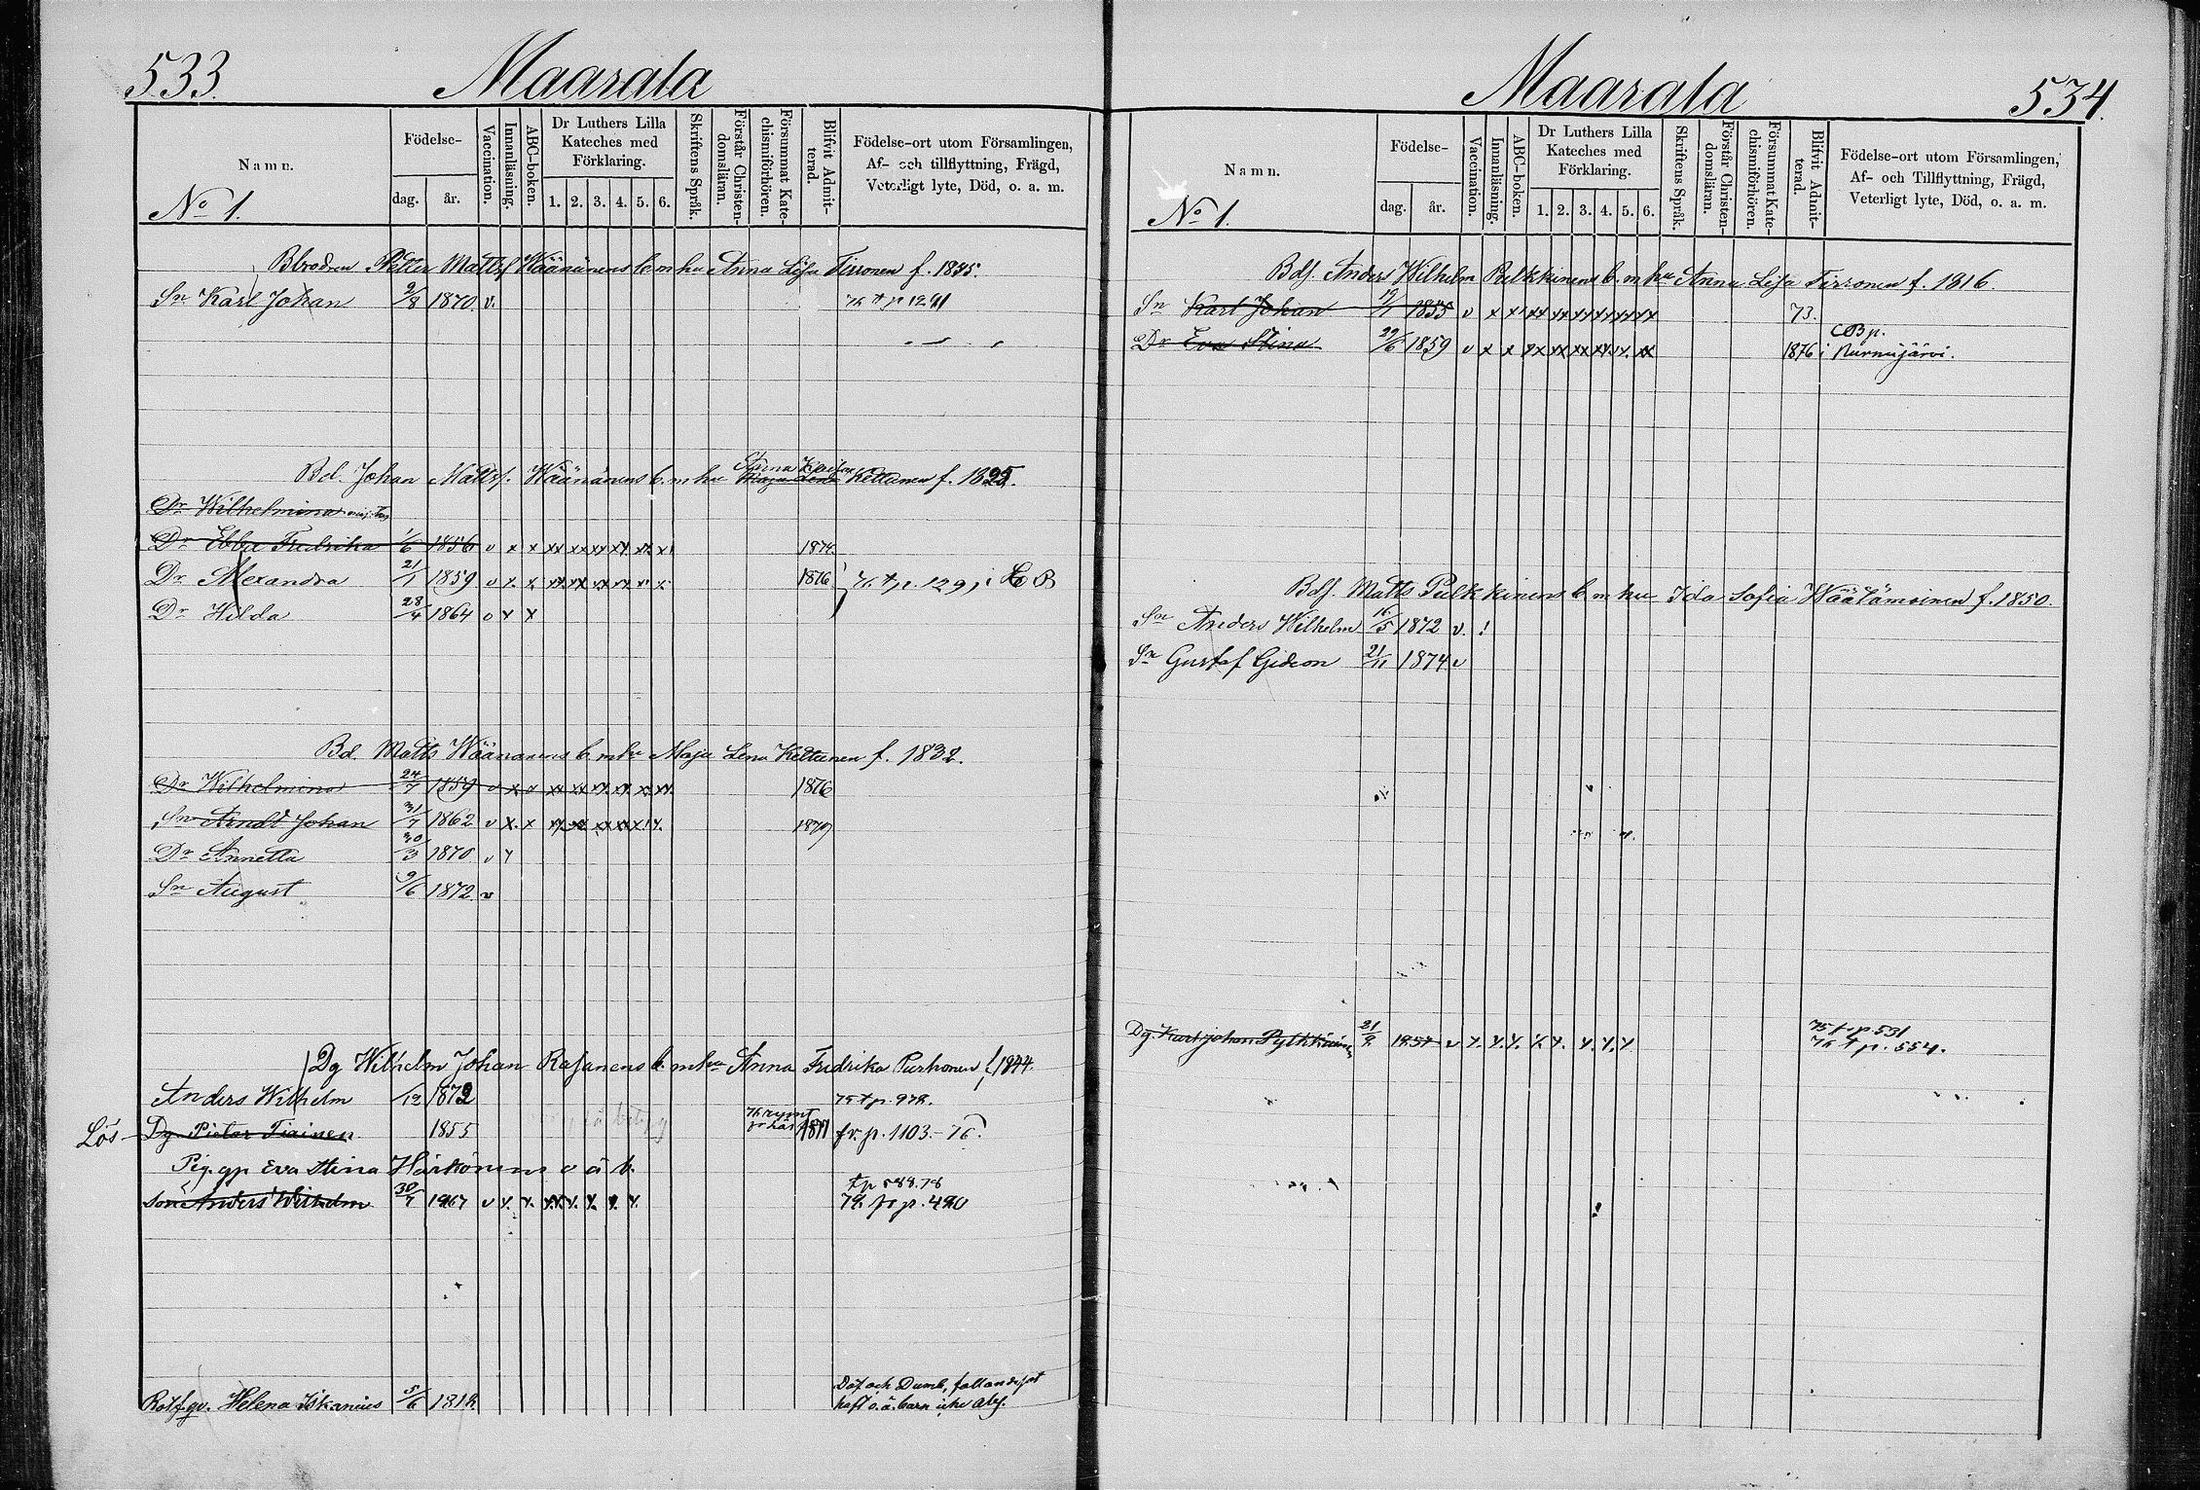 533.
Maarala
Namn.
Födelse-
dag.
år.
Vaccination.
Innanläsning.
ABC-boken.
Dr Luthers Lilla
Kateches med
Förklaring.
1. 2. 3. 4. 5. 6.
Skriftens Språk.
Förstår Christen-
domsläran.
Försummat Kate-
chismiförhören.
Blifvit Admit-
terad.
Födelse-ort utom Församlingen,
Af- och tillflyttning, Frägd,
Veterligt lyte, Död, o. a. m.
No 1.
Petter Matts Wäänänens b. m hu Anna Lisa Tirronen f. 1845.
Sn Karl Johan 9/8 1870. v. 76 t p 1291
Bd. Johan Matts. Wäänänens b. m hu Kettunen f. 1825.
Dr Wilhelmina
Dr Ebba Fredrika 1/6 1856 v x x xx xx xx xx xx x 1874.
Dr Alexandra 21/1 1859 v x x xx xx xx xx x x 1876 76 t p. 129, i
Dr Hilda 28/4 1864 v x x
Bd. Matts Wäänänens b. m hu Maja Lena Kettunen f. 1832.
Dr Wilhelmina 24/7 1859 v x x xx xx xx xx xx xx 1876
Sn Johan 31/7 1862 v x x 1879
Dr Annetta 30/3 1870 v x
Sn August 9/6 1872 v
Dg Wilhelm Johan Rasanens b. m hu Anna Fredrika Purhonen f. 1844.
Anders Wilhelm /12 1872 75 t p. 972.
Lös Dg. Pietar Tiainen 1855 1877 fr. p. 1103.-76.
Pig. gp Eva Stina Härkönens o ä b.
t p 588.78
Son Anders Wilhelm 30/7 1867 v x. x. xx x. x. x. x. 72. fr p. 420
Döf och Dumb, fallandesot
Helena Iskanius 5/6 1812. haft o. ä. barn icke abs.
Maarala
534.
Namn.
Födelse-
dag.
år.
Vaccination.
Innanläsning.
ABC-boken.
Dr Luthers Lilla
Kateches med
Förklaring.
1. 2. 3. 4. 5. 6.
Skriftens Språk.
Förstår Christen-
domsläran.
Försummat Kate-
chismiförhören.
Blifvit Admit-
terad.
Födelse-ort utom Församlingen,
Af- och Tillflyttning, Frägd,
Veterligt lyte, Död, o. a. m.
No 1.
Bds. Anders Wilhelm Pulkkinens b. m hu Anna Lisa Tirronen f. 1816.
Sn Karl Johan 1855 v x x xx xx xx xx xx xx 73.
Dr Eva Stina 29/6 1859 v x x xx xx xx xx x. xx 1876 i Kurmujärvi.
Bds. Matts Pulkkinens b m hu Ida Sofia Wäätämoinen f. 1850.
Sn Anders Wilhelm 16/5 1872 v.
Sn Gustaf Gideon 21/11 1874 v
75 t. p 531
Dg. Karl Johan Pylkkäinen 1857 v x. x. x. x x. x. x. x. 76 t p. 554.